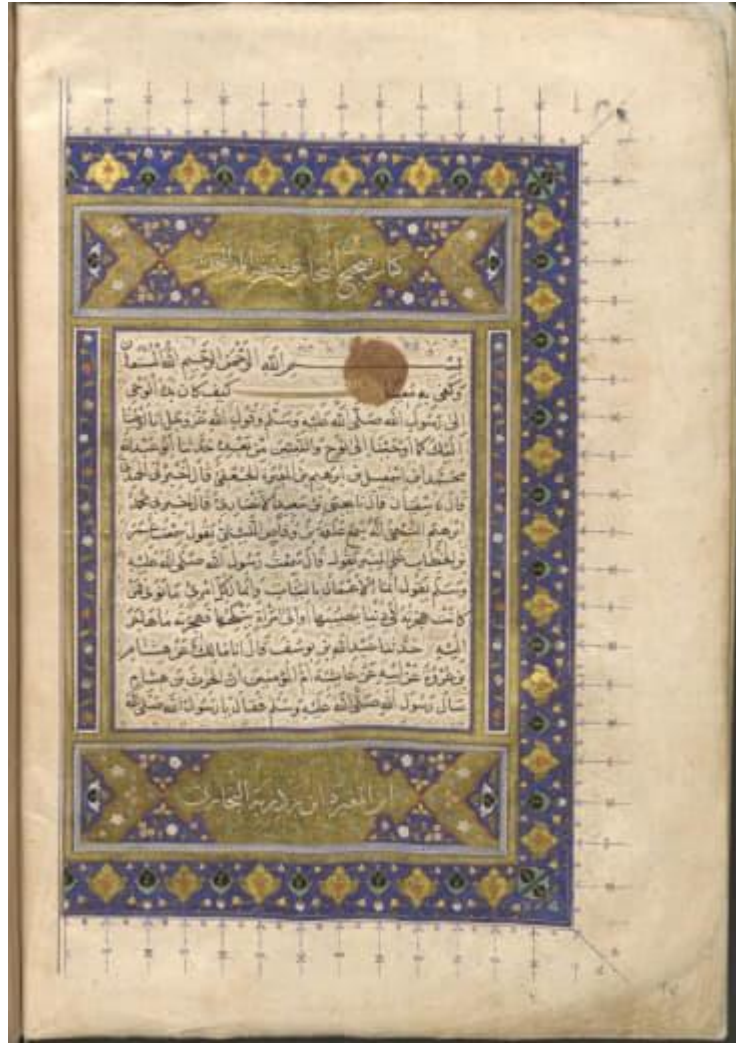 كتاب صحيح البخاري
بسم الله الرحمن الرحيم الله المستعان
وكفى به معينا كيف كان بدء الوحي
الى رسول الله صلى الله عليه وسلم وقول الله عز وجل انا اوحينا
اليك كما اوحينا الى نوح والنبيين من بعده حدثنا ابو عبد الله
محمد بن اسمعيل بن ابرهيم بن المغيرة الجعفي قال
قال سفيان قال يحيى بن سعيد الانصاري قال اخبرني محمد
ابرهيم التيمي انه سمع علقمة بن وقاص الليثي يقول سمعت عمر
بن الخطاب على المنبر يقول قال سمعت رسول الله صلى الله عليه
وسلم يقول انما الاعمال بالنيات وانما لكل امرئ ما نوى فمن
كانت هجرته الى دنيا يصيبها والى امراة ينكحها فهجرته ما هاجر
اليه حدثنا عبد الله بن يوسف قال انا مالك عن هشام
بن عروة عن ابيه عن عائشة ام المؤمنين ان الحرث بن هشام
سال رسول الله صلى الله عليه وسلم فقال يا رسول الله صلى الله
ابن المغيرة ابن بردزبة البخاري